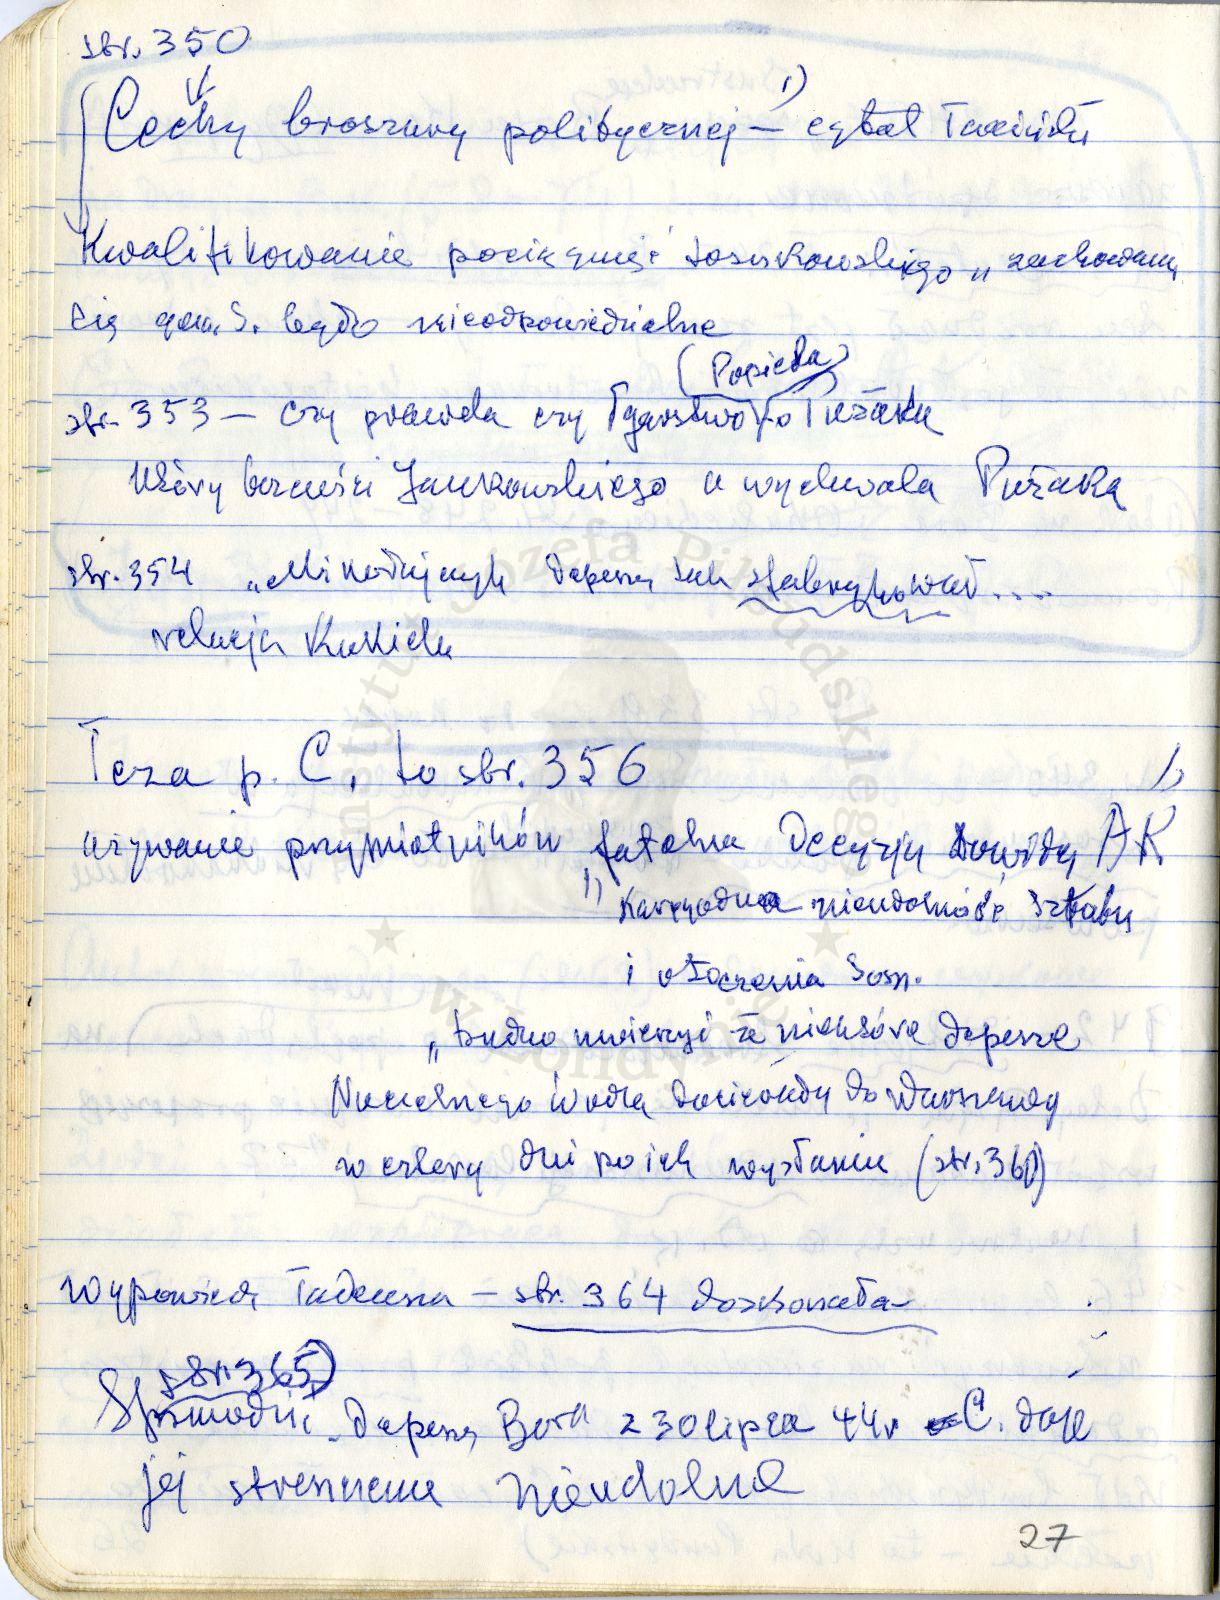 str. 350
Cechy broszury politycznej — cytat 1)
Kwalifikowanie pociągnięć Sosnkowskiego „zachowanie
się gen. S. było nieodpowiedzialne
(Popiela)
str. 353 — czy prawda czy łgarstwo o Pużaku
który Jankowskiego a wychwala Pużaka
str. 354 „Mikołajczyk depeszę sfabrykował....
relacja Kukiela
Teza p. C. to str. 356
używanie przymiotników „fatalna Decyzja Dowódcy AK 1)
1) karygodna nieudolność Sztabu
i otoczenia Sosn.
„trudno uwierzyć że niektóre depesze
Naczelnego Wodza docierały do Warszawy
w cztery dni po ich wysłaniu (str. 361)
Wypowiedź Tadeusza — str. 364 doskonała
str. 365)
Sprawdzić depeszę Bora z 30 lipca 44 r C. daje
jej streszczenie nieudolne
27
Instytut Józefa Piłsudskiego
w Londynie